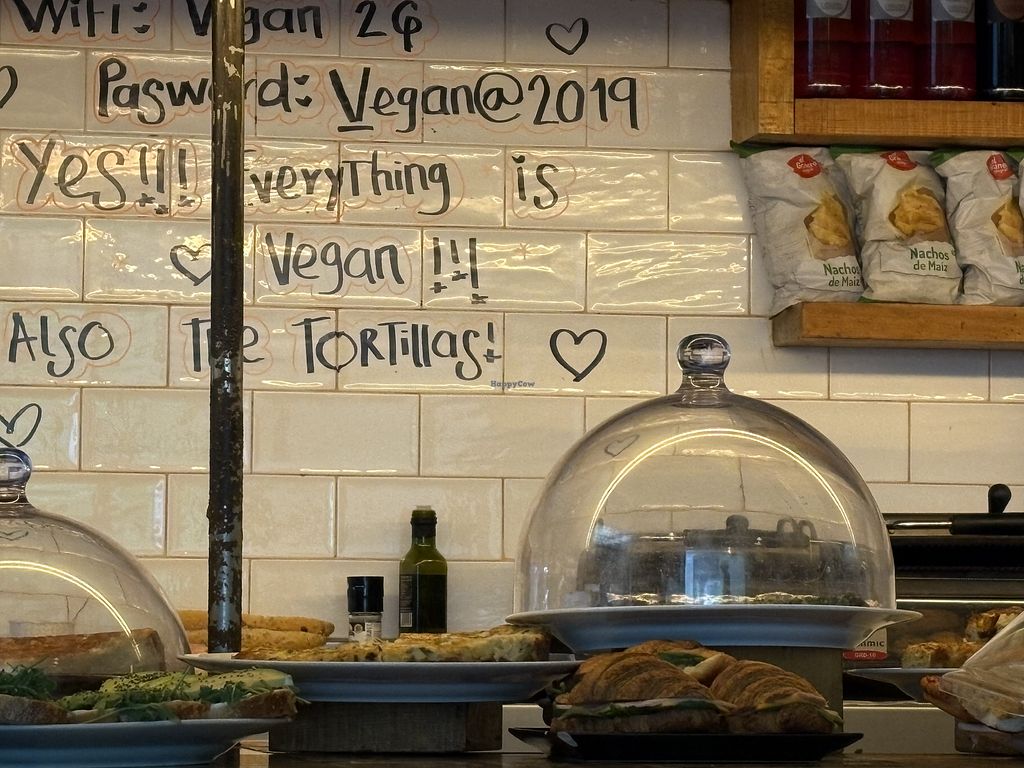 Wifi: Vegan 2G
Pasword: Vegan@2019
Yes!!! Everything is
Vegan !!!
Also The Tortillas!
HappyCow
Nachos
de Maiz
Nachos
de Maiz